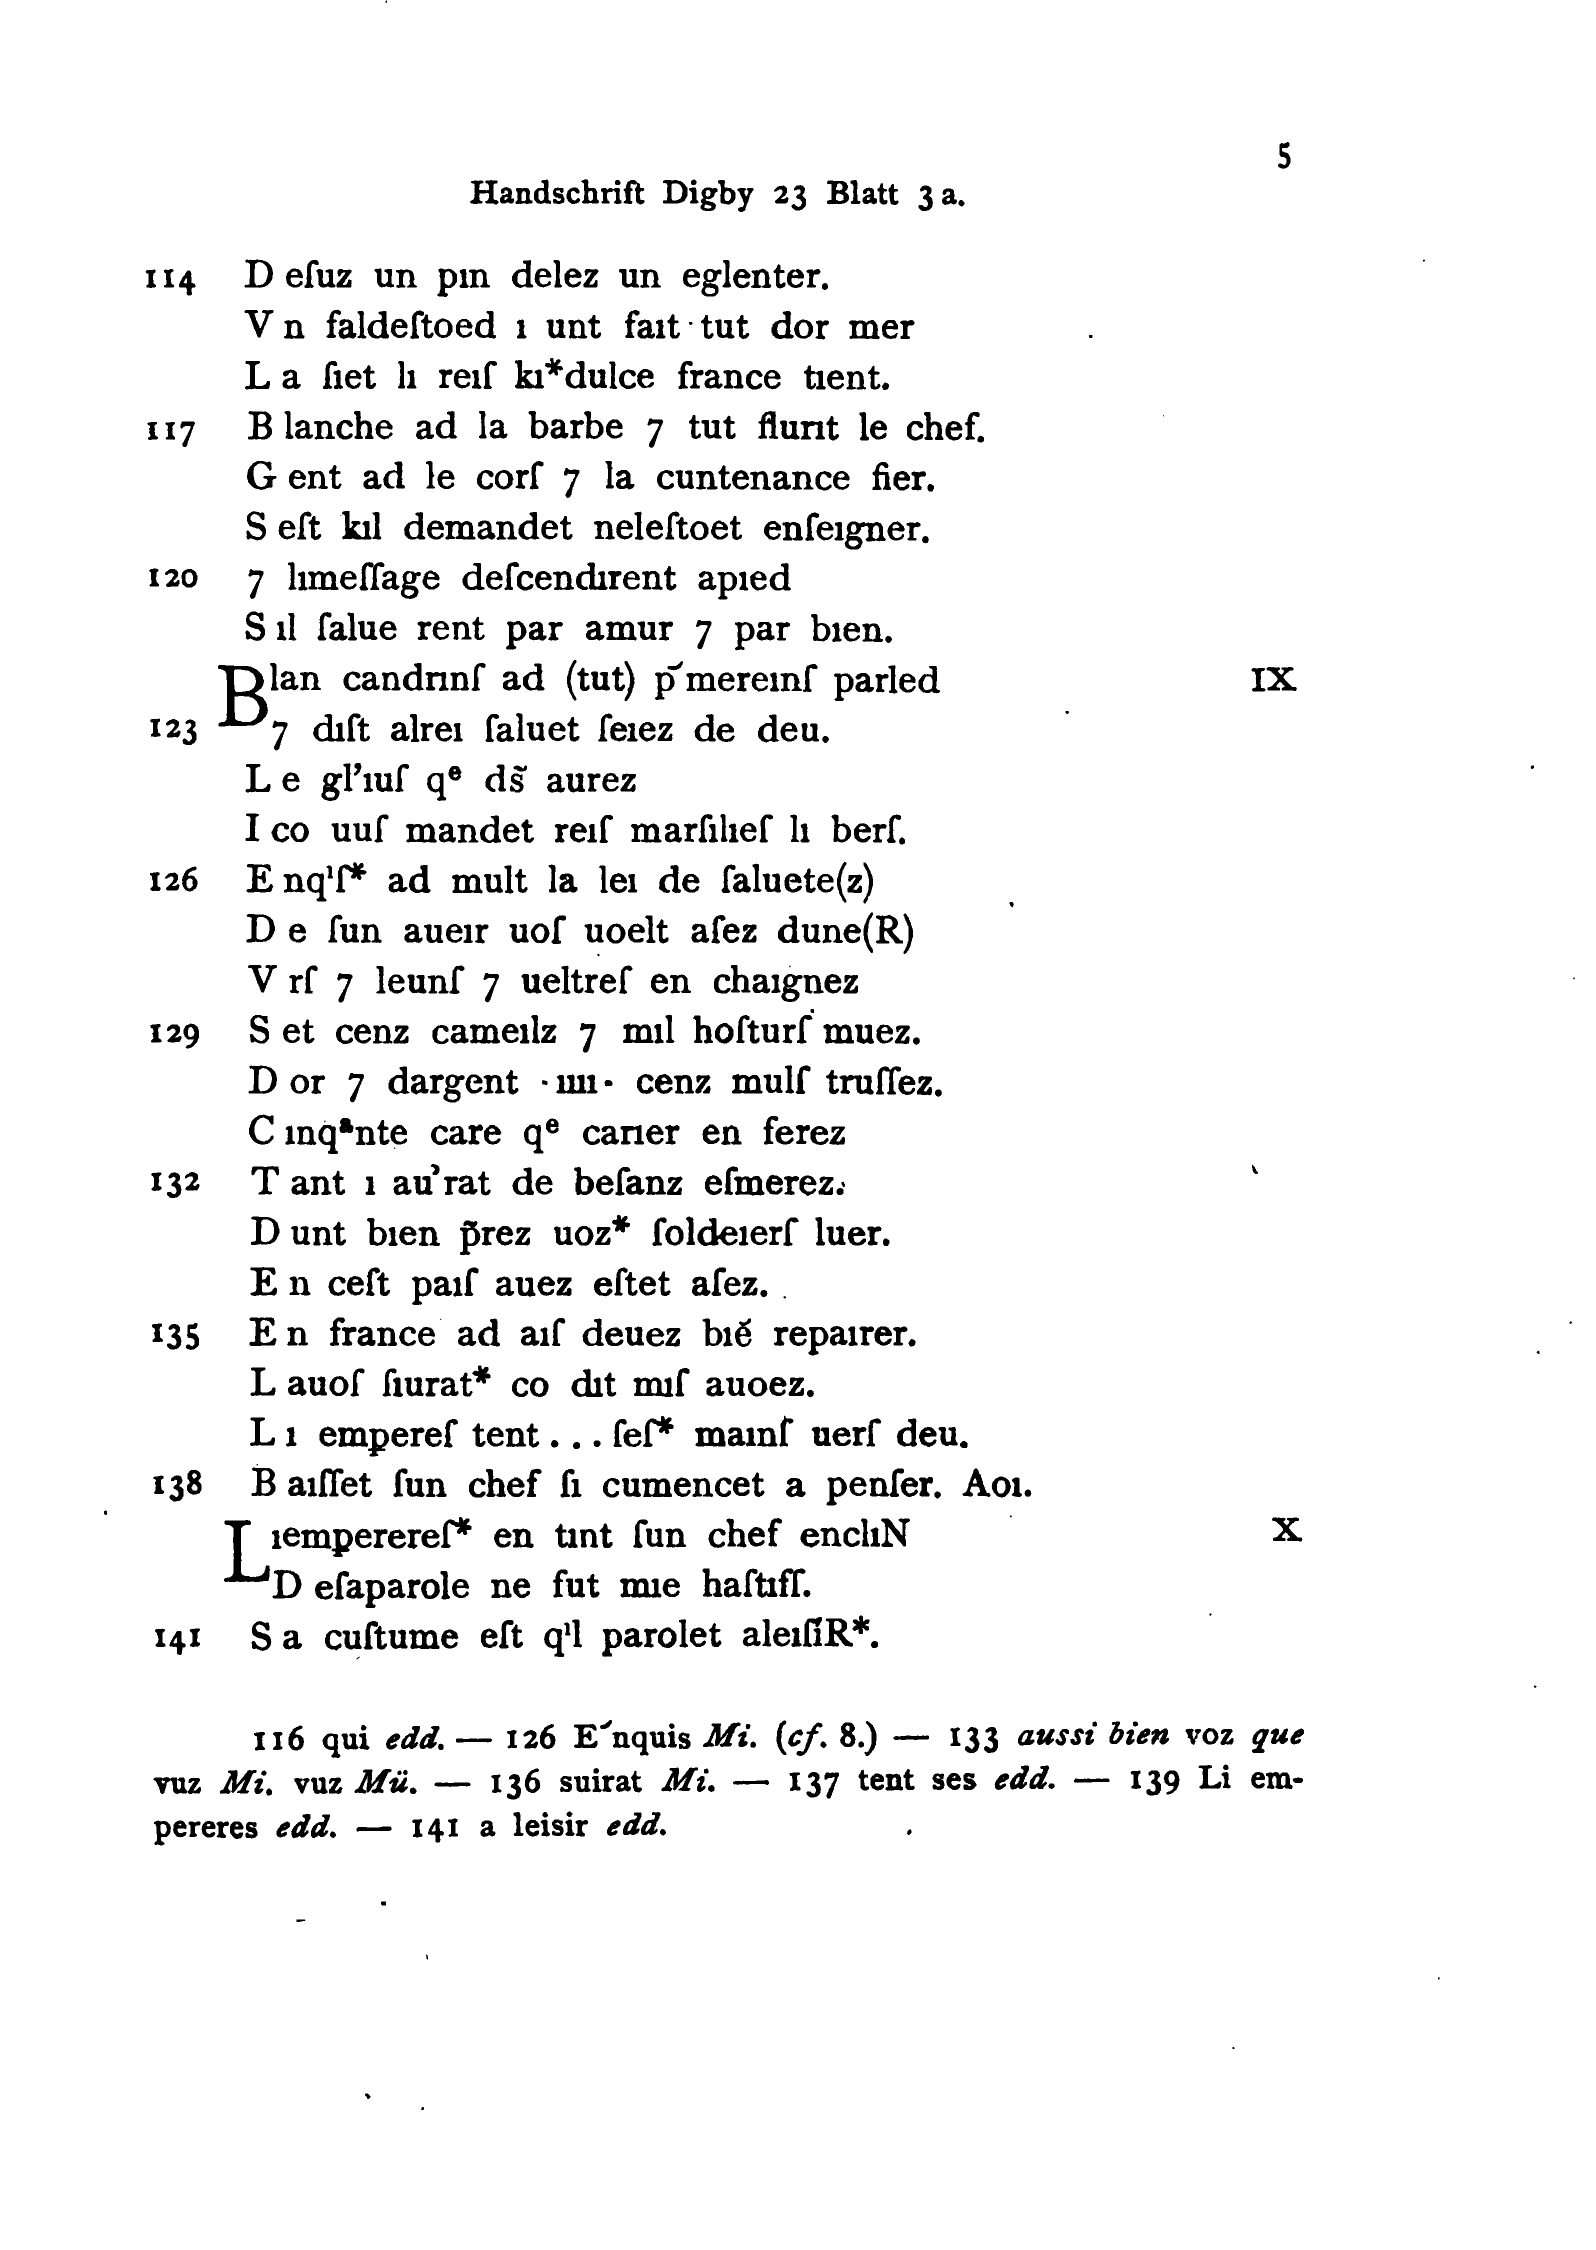 5
Handschrift Digby 23 Blatt 3 a.
114 D eſuz un pın delez un eglenter.
V n faldeſtoed ı unt faıt tut dor mer
L a ſiet lı reıſ kı*dulce france tıent.
117 B lanche ad la barbe 7 tut flurıt le chef.
G ent ad le corſ 7 la cuntenance fier.
S eſt kıl demandet neleſtoet enſeıgner.
120 7 lımeſſage deſcendırent apıed
S ıl ſalue rent par amur 7 par bıen.
Blan candrınſ ad (tut) p̄ mereınſ parled IX
123 7 dıſt alreı ſaluet ſeıez de deu.
L e gl’ıuſ qᵉ ds̃ aurez
I co uuſ mandet reıſ marſılıeſ lı berſ.
126 E nqˡſ* ad mult la leı de ſaluete(z)
D e ſun aueır uoſ uoelt aſez dune(R)
V rſ 7 leunſ 7 ueltreſ en chaıgnez
129 S et cenz cameılz 7 mıl hoſturſ muez.
D or 7 dargent ·ıııı· cenz mulſ truſſez.
C ınqᵃnte care qᵉ carıer en ferez
132 T ant ı au’rat de beſanz eſmerez.
D unt bıen p̃rez uoz* ſoldeıerſ luer.
E n ceſt paıſ auez eſtet aſez.
135 E n france ad aıſ deuez bıĕ repaırer.
L auoſ ſıurat* co dıt mıſ auoez.
L ı empereſ tent . . . ſeſ* maınſ uerſ deu.
138 B aıſſet ſun chef ſı cumencet a penſer. Aoı.
Lıemperereſ* en tınt ſun chef enclıN X
D eſaparole ne fut mıe haſtıſſ.
141 S a cuſtume eſt qˡl parolet aleıſı̃R*.
116 qui edd. — 126 E´nquis Mi. (cf. 8.) — 133 aussi bien voz que
vuz Mi. vuz Mü. — 136 suirat Mi. — 137 tent ses edd. — 139 Li em-
pereres edd. — 141 a leisir edd.